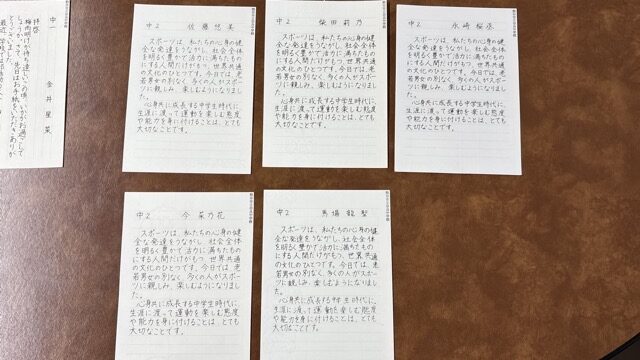 中一 金井星菜
拝啓
梅雨明けが待ち遠しいこの頃、いかがお過ごしで
しょうか。さて、先日はお手紙をいただきありが
とうございました。
中2 佐藤悠美
スポーツは、私たちの心身の健
全な発達をうながし、社会全体
を明るく豊かで活力に満ちたもの
にする人間だけがもつ、世界共通
の文化のひとつです。今日では、老
若男女の別なく、多くの人がスポー
ツに親しみ、楽しむようになりまし
た。
心身共に成長する中学生時代に、
生涯に渡って運動を楽しむ態度
や能力を身に付けることは、とても
大切なことです。
中2 柴田莉乃
スポーツは、私たちの心身の健
全な発達をうながし、社会全体
を明るく豊かで活力に満ちたもの
にする人間だけがもつ、世界共通
の文化のひとつです。今日では、老
若男女の別なく、多くの人がスポー
ツに親しみ、楽しむようになりまし
た。
心身共に成長する中学生時代に、
生涯に渡って運動を楽しむ態度
や能力を身に付けることは、とても
大切なことです。
中2 永崎桜彦
スポーツは、私たちの心身の健
全な発達をうながし、社会全体
を明るく豊かで活力に満ちたもの
にする人間だけがもつ、世界共通
の文化のひとつです。今日では、老
若男女の別なく、多くの人がスポー
ツに親しみ、楽しむようになりました。
心身共に成長する中学生時代に、
生涯に渡って運動を楽しむ態度
や能力を身に付けることは、とても
大切なことです。
中2 今菜乃花
スポーツは、私たちの心身の健
全な発達をうながし、社会全体
を明るく豊かで活力に満ちたもの
にする人間だけがもつ、世界共通
の文化のひとつです。今日では、老
若男女の別なく、多くの人がスポー
ツに親しみ、楽しむようになりまし
た。
心身共に成長する中学生時代に、
生涯に渡って運動を楽しむ態度
や能力を身に付けることは、とても
大切なことです。
中2 馬場龍聖
スポーツは、私たちの心身の健
全な発達をうながし、社会全体
を明るく豊かで活力に満ちたもの
にする人間だけがもつ、世界共通
の文化のひとつです。今日では、老
若男女の別なく、多くの人がスポー
ツに親しみ、楽しむようになりまし
た。
心身共に成長する中学生時代に、
生涯に渡って運動を楽しむ態度
や能力を身に付けることは、とても
大切なことです。